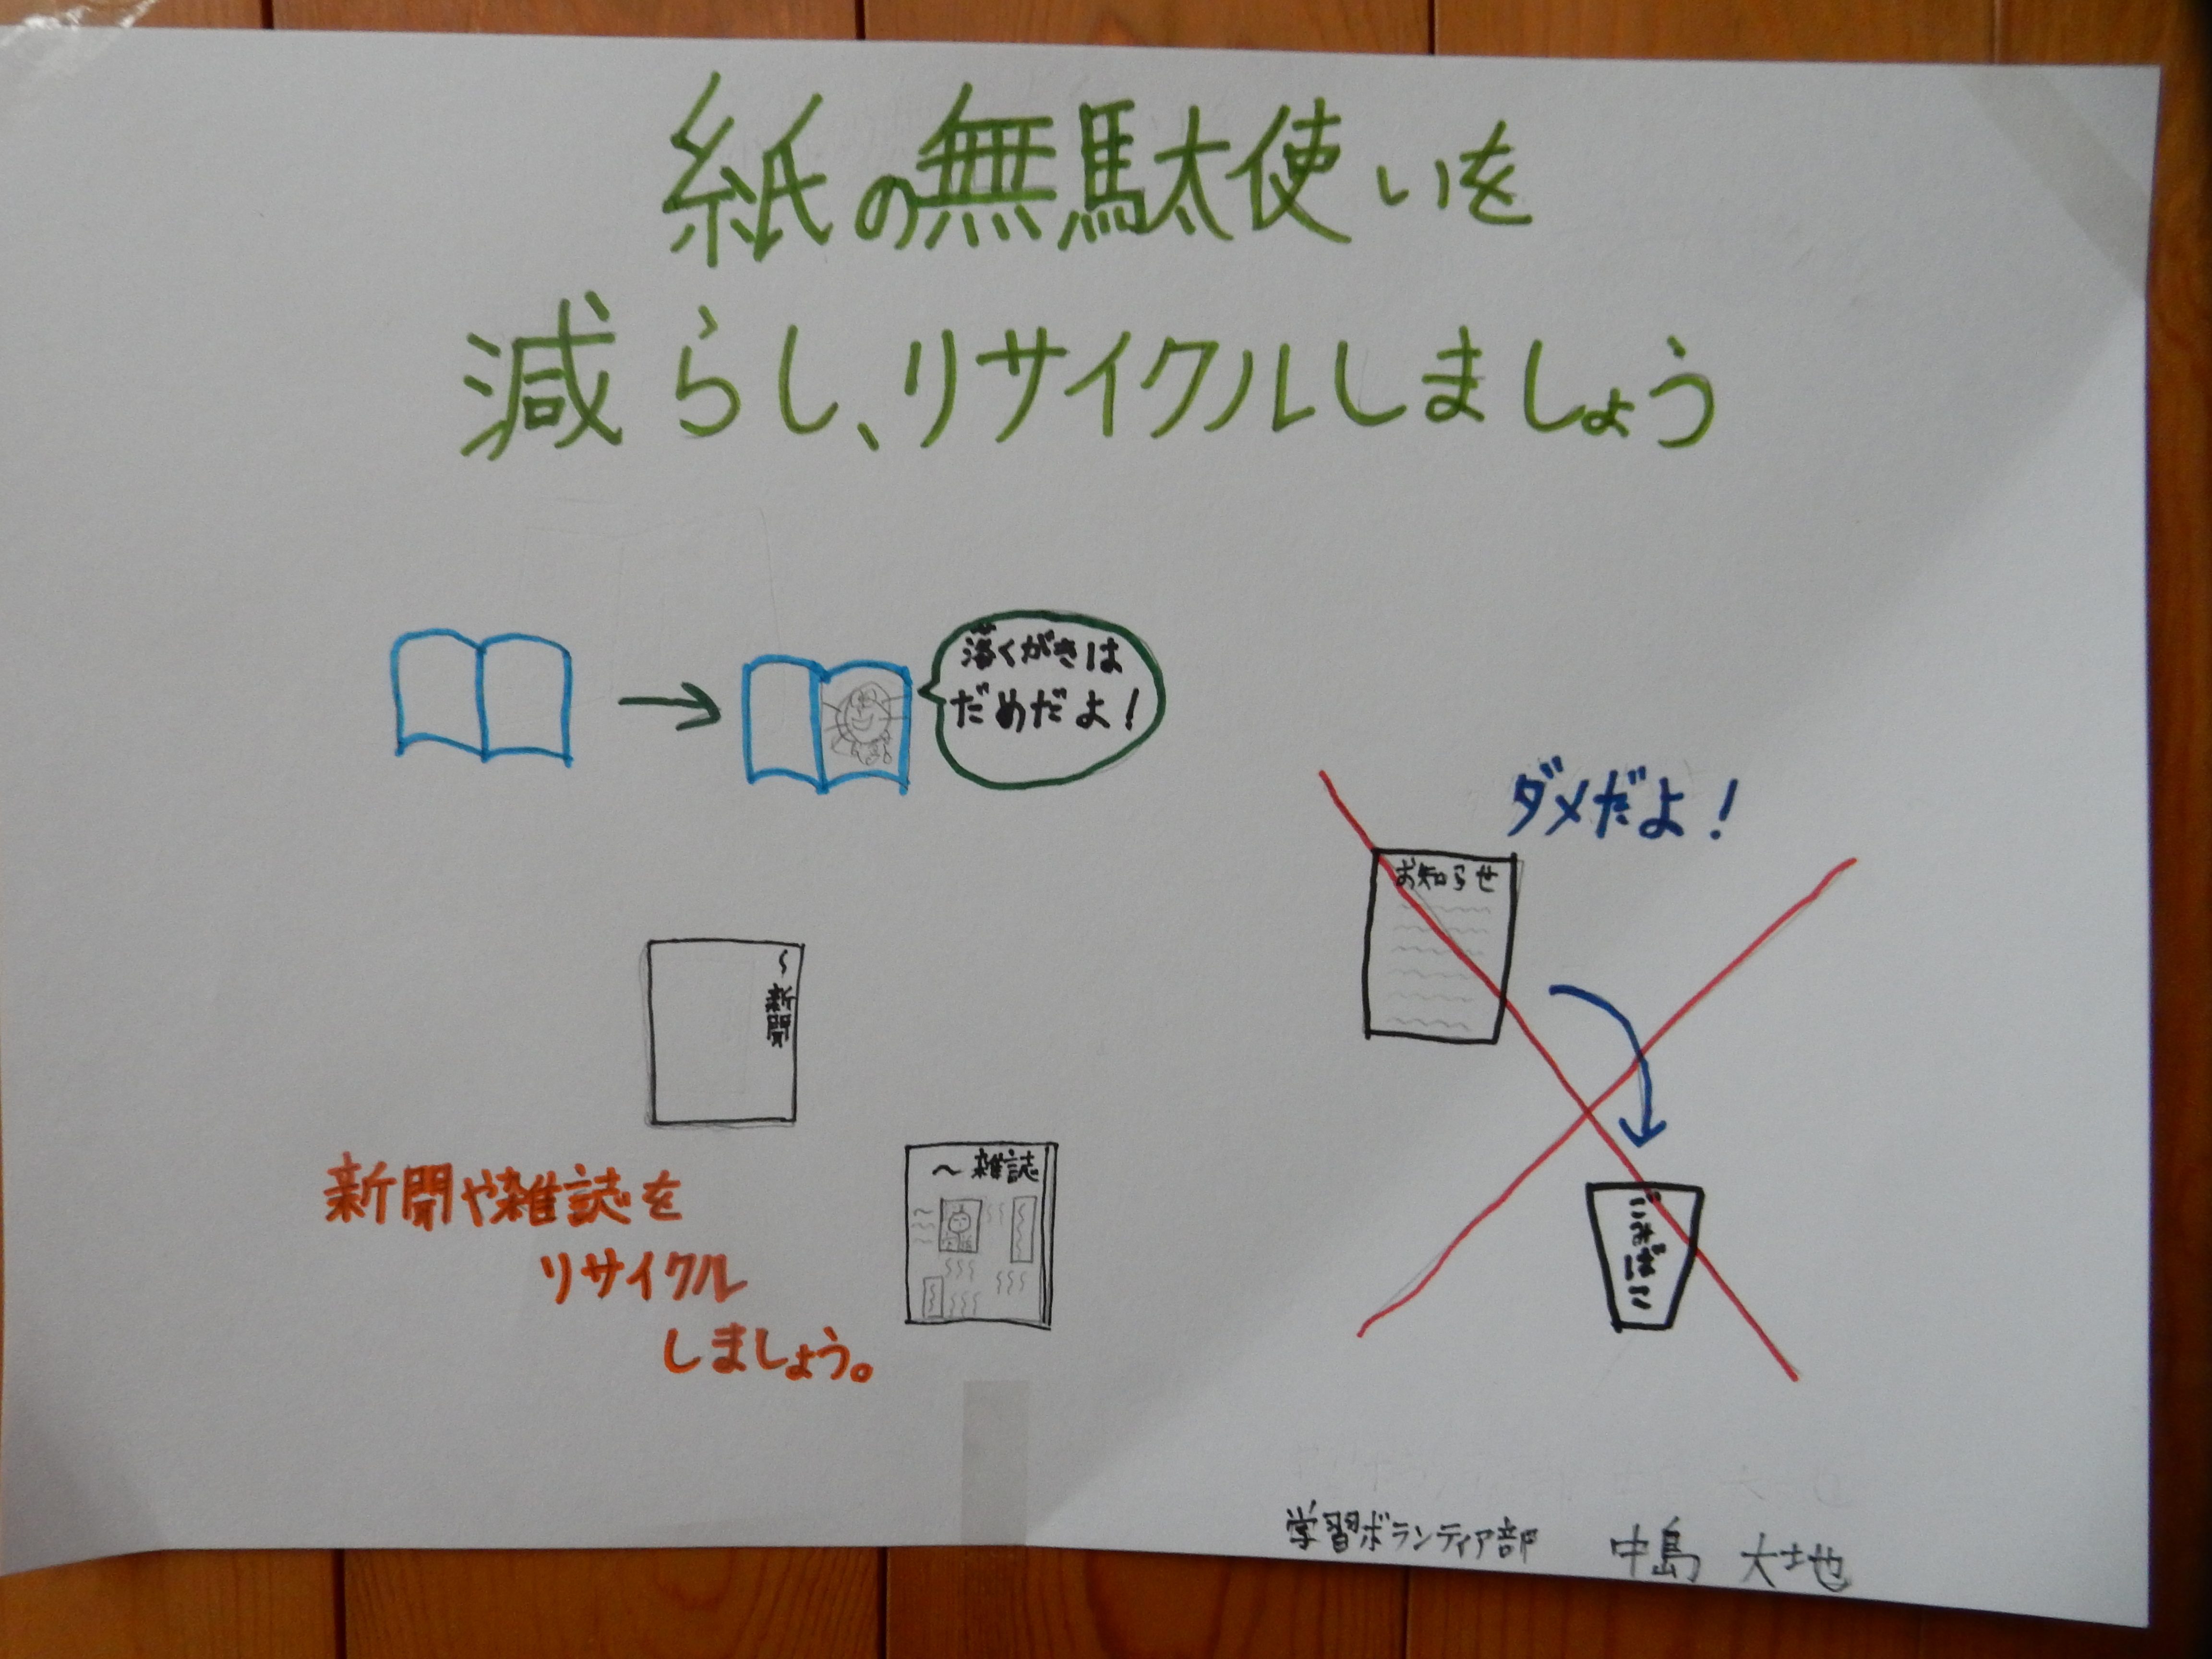 紙の無駄使いを
減らし、リサイクルしましょう
落くがきは
だめだよ！
ダメだよ！
お知らせ
ごみばこ
～新聞
～雑誌
新聞や雑誌を
リサイクル
しましょう。
学習ボランティア部 中島 大地